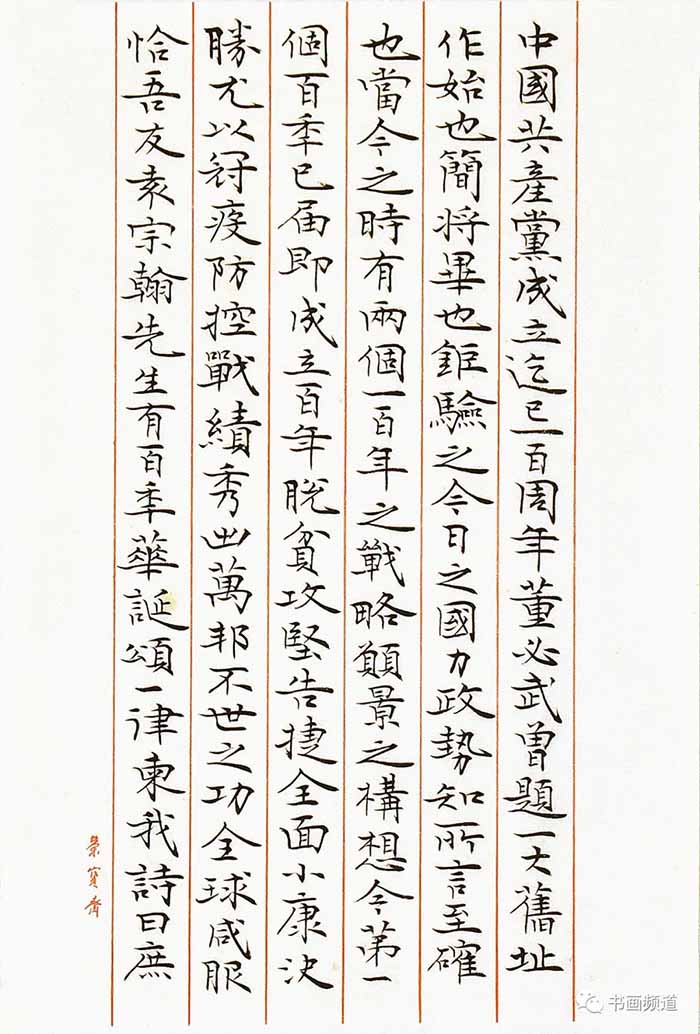 中國共產黨成立迄已一百周年董必武曾題一大舊址
作始也簡將畢也鉅驗之今日之國力政勢知所言至確
也當今之時有兩個一百年之戰略願景之構想今第一
個百季已届即成立百年脫貧攻堅告捷全面小康決
勝尤以冠疫防控戰績秀出萬邦不世之功全球咸服
恰吾友袁宗翰先生有百季華誕頌一律柬我詩曰庶
榮寶齋
书画频道